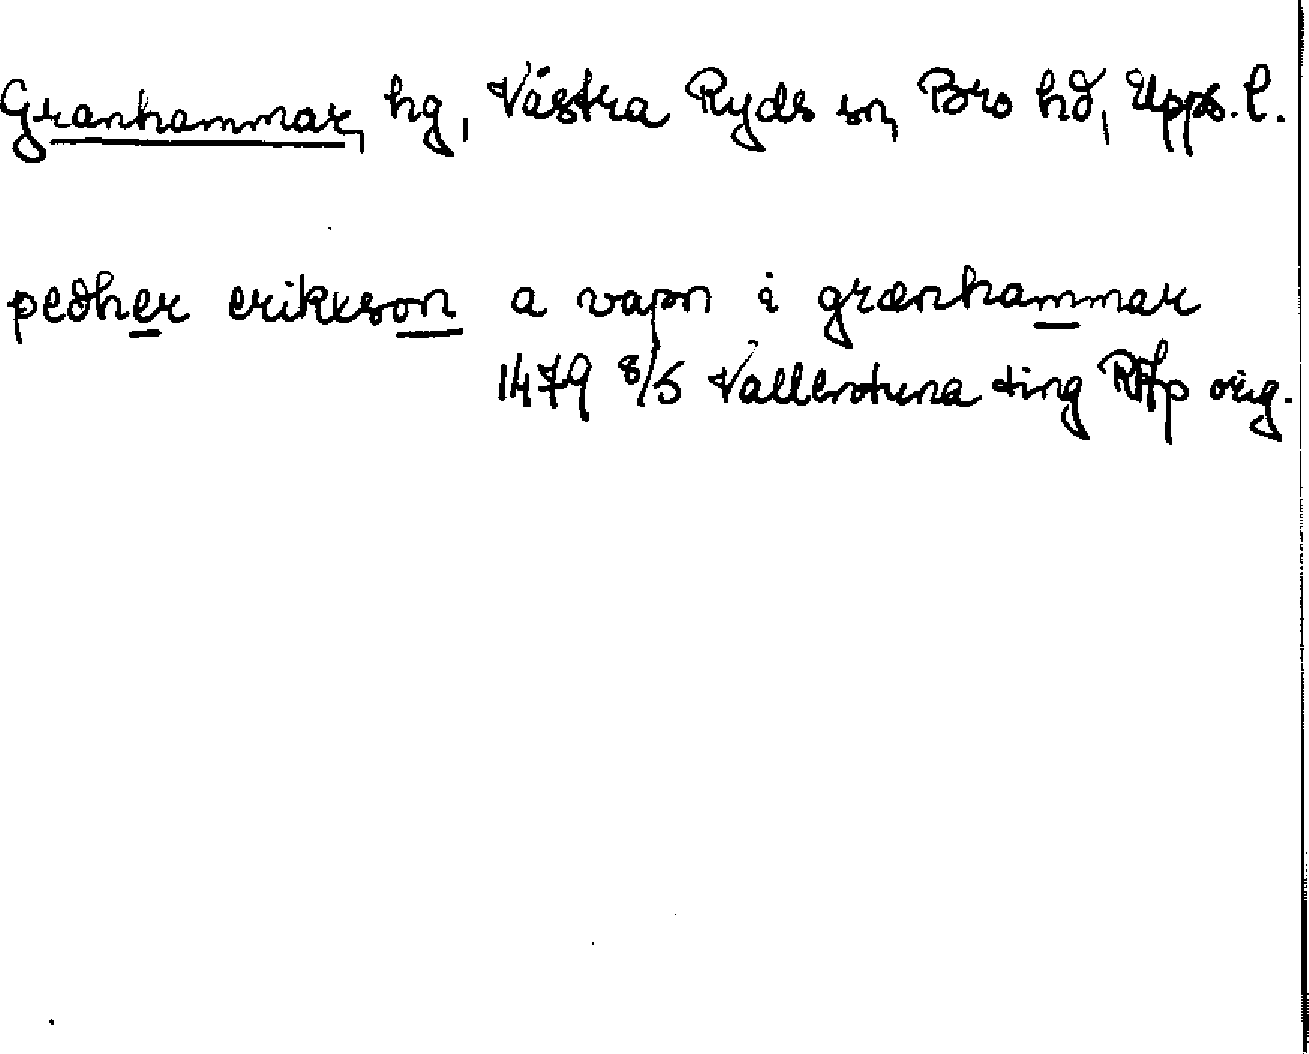 Granhammar, hg, Västra Ryds sn, Bro hd, Upps. l.
pedher erikxson a vapn i grænhammar
1479 8/5 Vallentuna ting RAp orig.